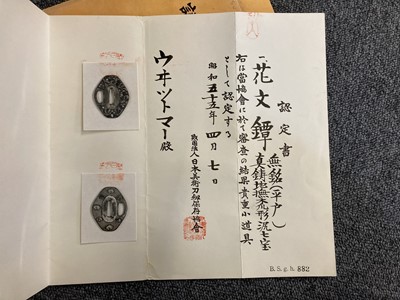 認定書
一、花文鐔 無銘(平戸)
真鍮地撫木瓜形沉七宝
右は當協會に於て審査の結果貴重小道具
として認定する
昭和五十五年四月七日
財団法人日本美術刀剣保存協會
ウヰットマー殿
B. S. g. h. 882